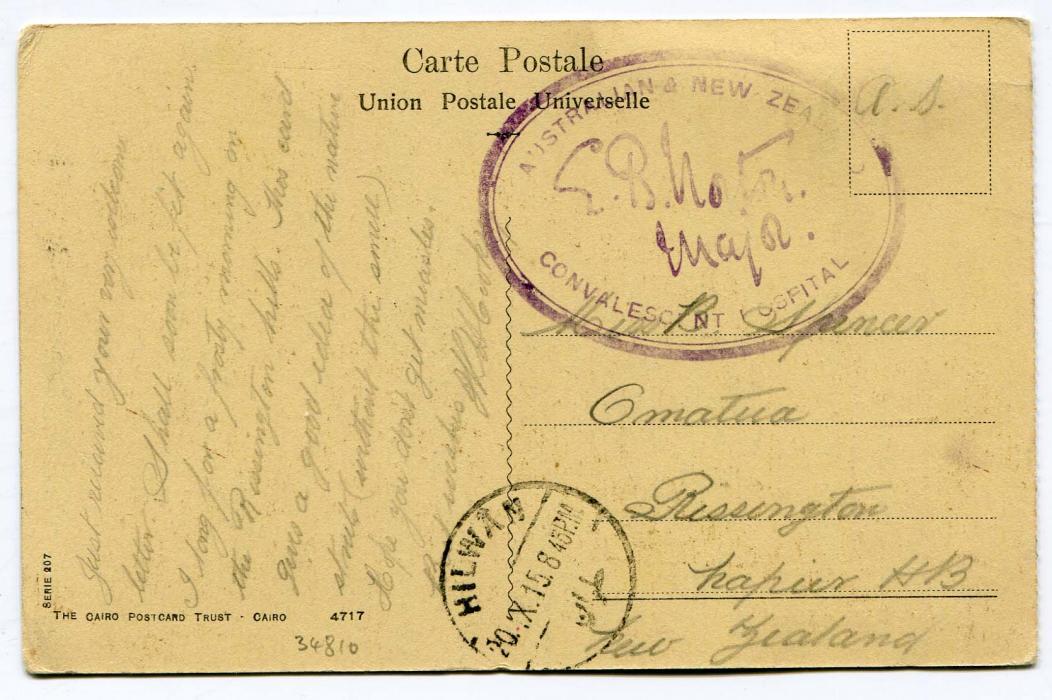 Carte Postale
Union Postale Universelle
AUSTRALIAN & NEW ZEA
E. B. Norton.
Major.
CONVALESCENT HOSPITAL
a. s.
Just received your very welcome
letter. Shall soon be fit again.
I long for a frosty morning on
the Rissington hills. This card
gives a good idea of the native
street (without the smell)
Hope you don't get measles.
Best wishes
Spencer
Omatua
Rissington
Napier HB
New Zealand
HILWAN
20.IX.15. 8 45PM
SERIE 207
THE CAIRO POSTCARD TRUST - CAIRO 4717
34810